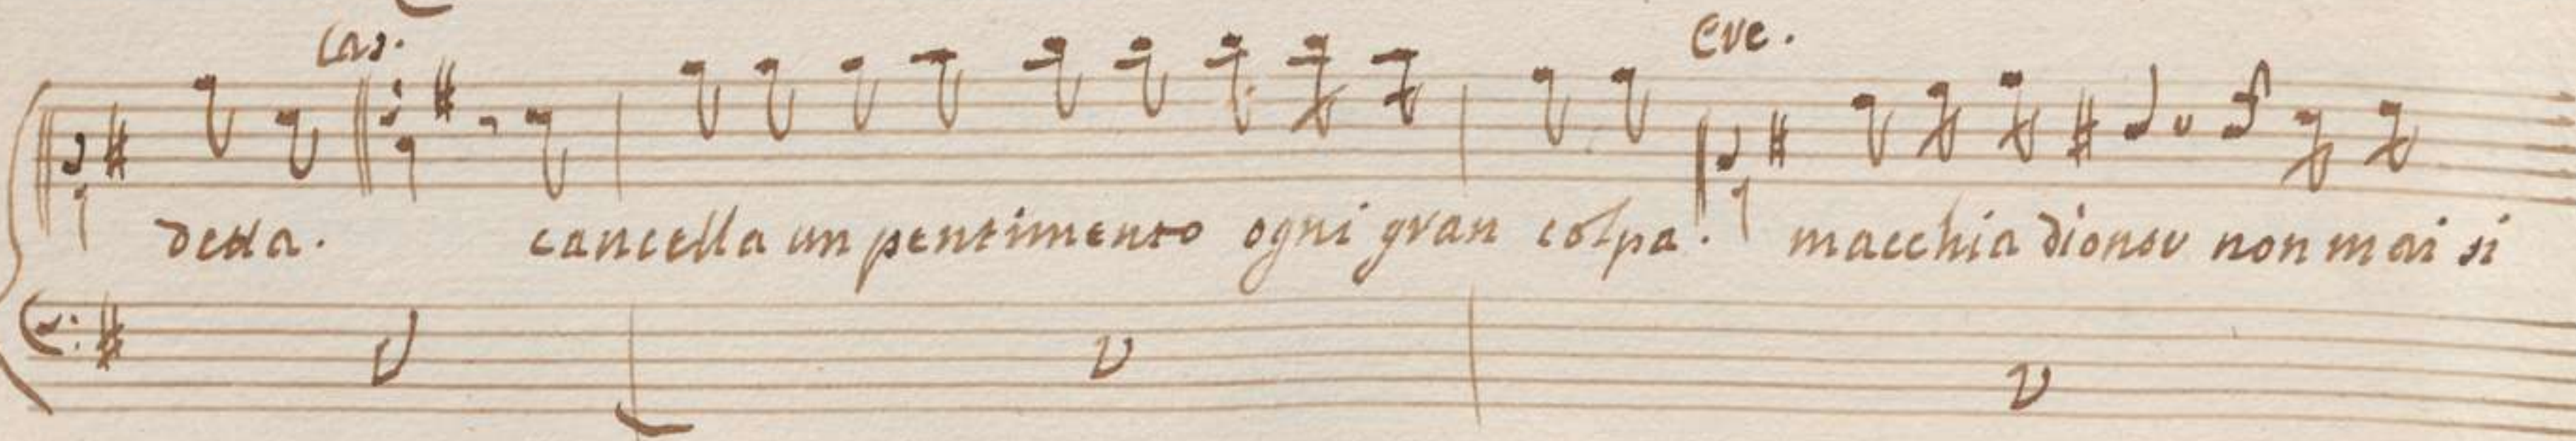 Cas. Eve.
deda. cancella un pentimento ogni gran colpa. macchia dionor non mai si